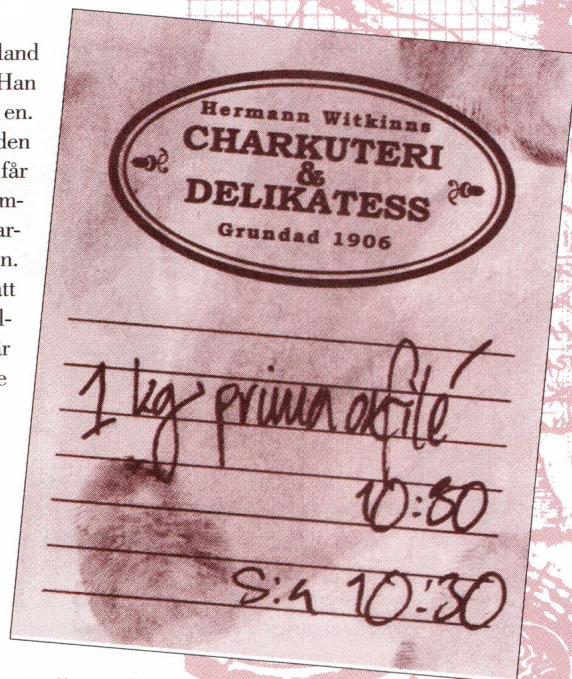 land
Han
en.
den
får
m-
ar-
n.
att
l-
är
e
Hermann Witkinns
CHARKUTERI
&
DELIKATESS
Grundad 1906
1 kg prima oxfilé
10:30
S:a 10:30